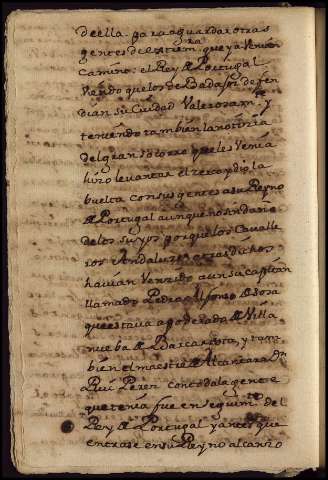 deella. para aguardar otras
gentes de extrem.ra que ya Venian
Camino: el Rey de Portugal
Viendo que los de Badajoz defen
dian su Ciudad Valerosam.te y
teniendo tambien la noticia
del gran socorro que les Venia
hizo levantar el y dio la
buelta con sus gentes a su Reyno
de Portugal aunque no sin daño
de los suyos porque los Cavalle
ros Andaluzes otras dichos
havian Venzido a un su capitan
llamado Pedro Alfonso de Sosa
que estava apoderado de Villa
nueba de Barcarrota, y tam
bien el maestre de Alcantara Dn
Rui Perez con toda la gente
que tenia fue en seguim.to del
Rey de Portugal y antes que
entrase en su Reyno alcanzo